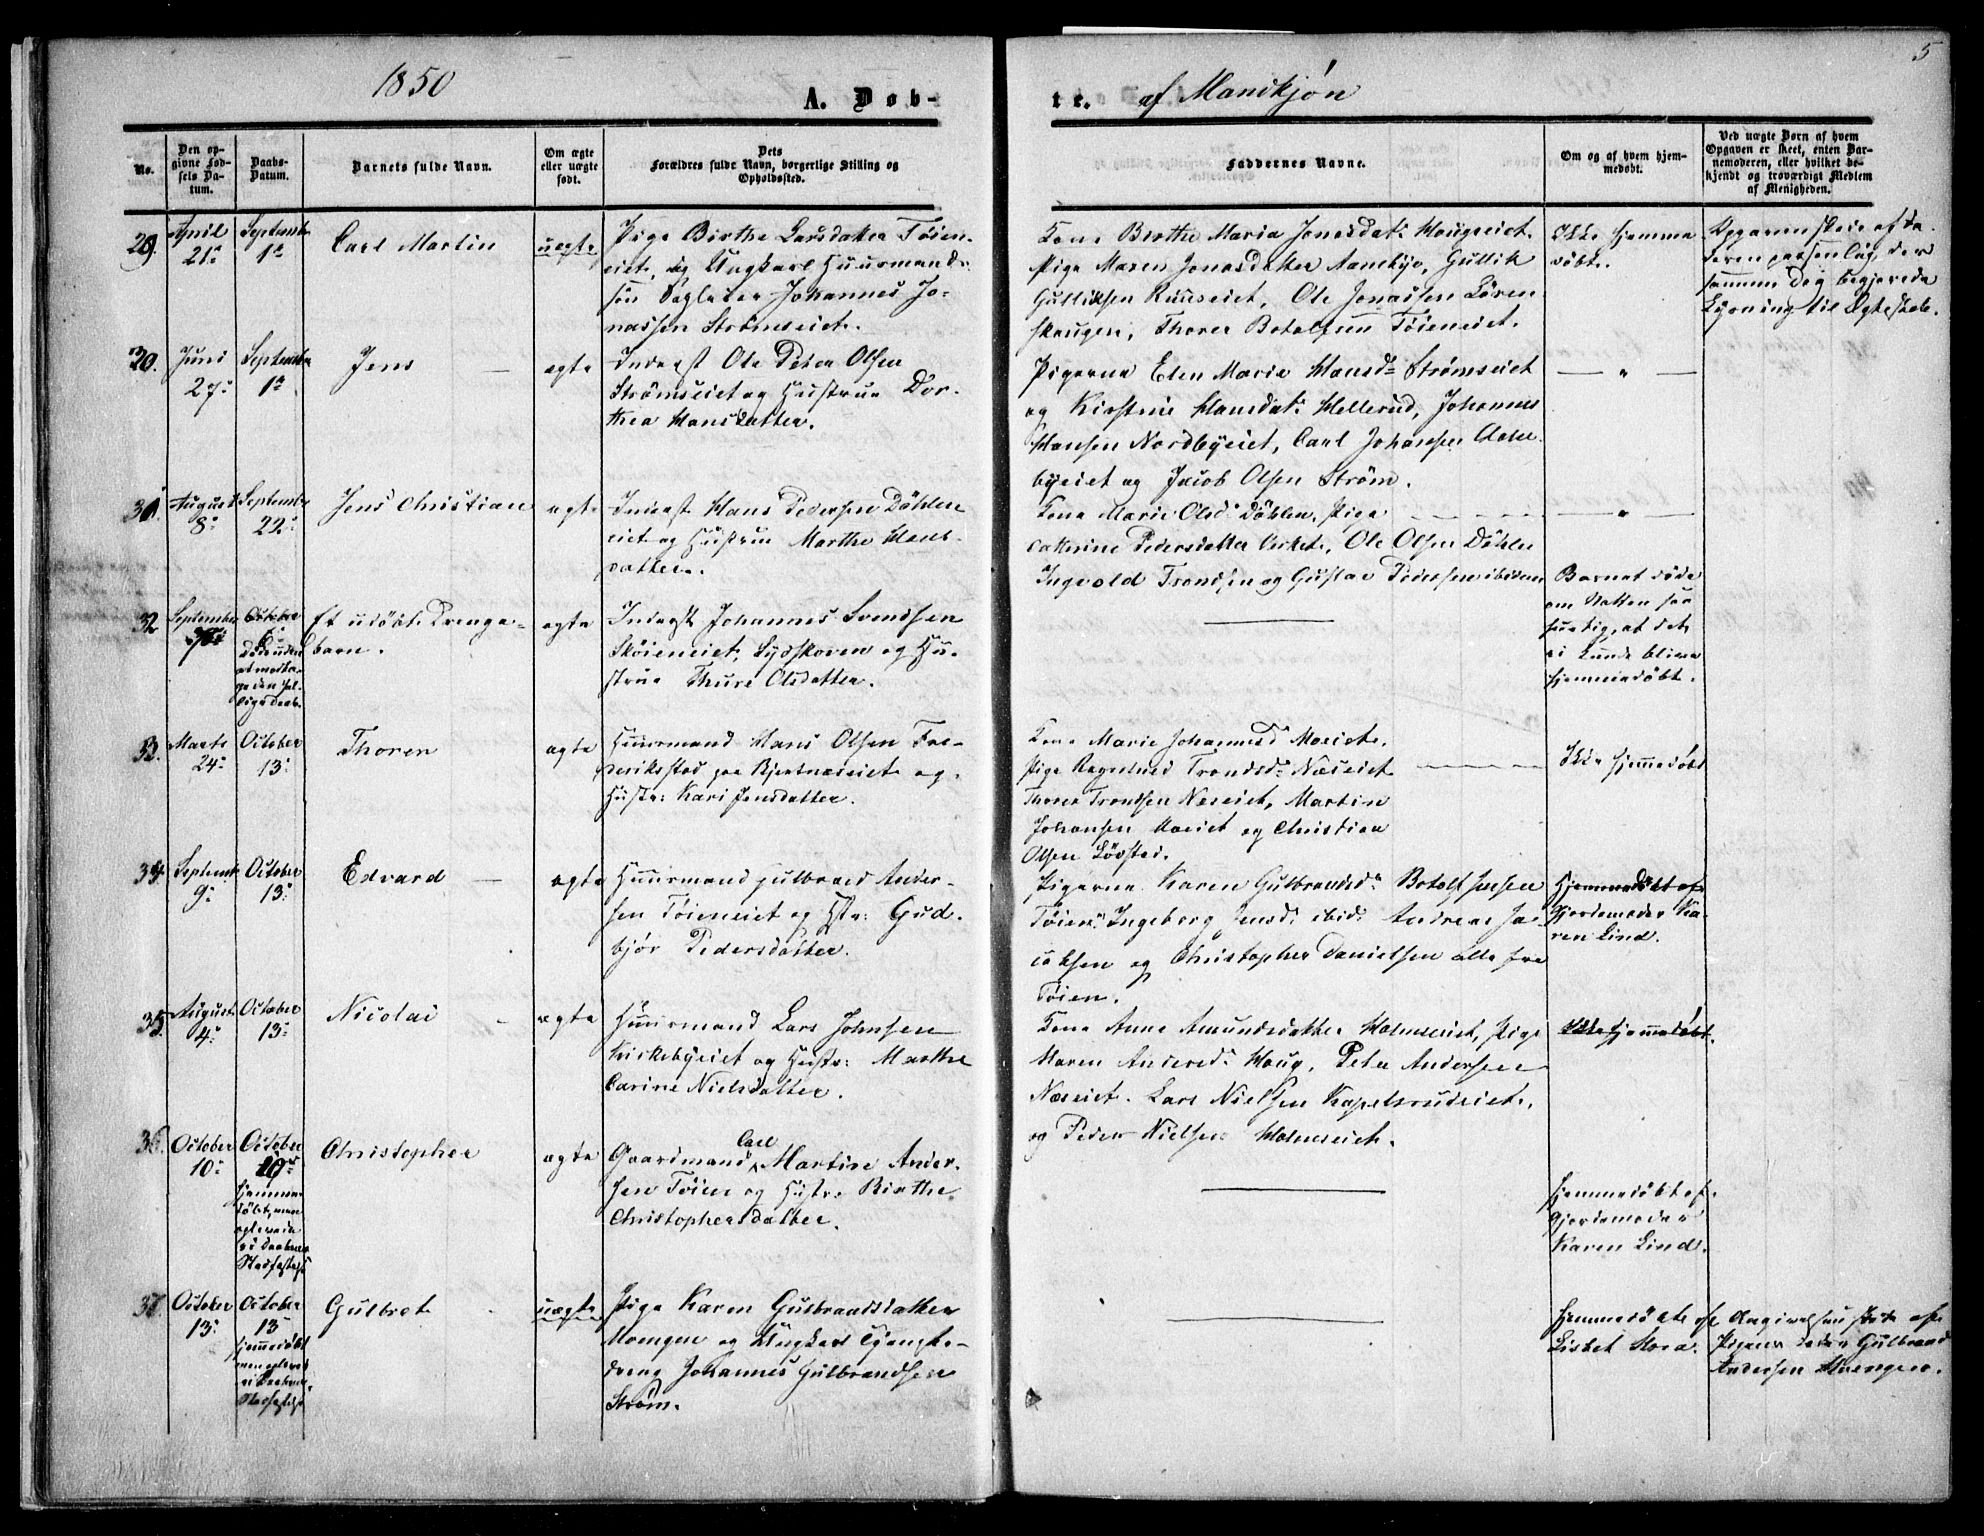 1850
A. Døb-
te.
af Mandkjøn
5
No.
Den op-
givne Fød-
sels Da-
tum.
Daabs-
Datum.
Barnets fulde Navn.
Om ægte
eller uægte
født.
Dets
Forældres fulde Navn, borgerlige Stilling og
Opholdssted.
Faddernes Navne.
Om og af hvem hjem-
medøbt.
Ved uægte Børn af hvem
Opgaven er skeet, enten Bar-
nemoderen, eller hvilket be-
kjendt og troværdigt Medlem
af Menigheden.
29.
April
21de
September
1ste
Carl Martin
uægte
Pige Birthe Larsdatter Tøien-
eiet, og Ungkarl Huurmands-
søn Daglejer Johannes Jo-
nassen Strømseiet.
Kone Birthe Maria Jonasdatr Hougseiet.
Pige Maren Jonasdatter Aamotbye, Gullik
Gulliksen Ruuseiet, Ole Jonassen Løren
skougen, Thorer Botolfsen Tøieneiet.
Ikke hjemme
døbt.
Opgaven skede af Fa-
deren
samme Dag begjerede
Lysning til Ægteskab.
30.
Juni
27de
September
1ste
Jens
ægte
Inderst Ole Peter Olsen
Strømseiet og Hustrue Dor-
thea Hansdatter.
Pigerne Elen Maria Hansdr Strømseiet
og Kirstine Hansdatr Hellerud, Johannes
Hansen Nordbyeiet, Carl Johansen
byeiet og Jacob Olsen Strøm.
— " —
31.
August
8de
September
22de
Jens Christian
ægte
Inderst Hans Pedersen Døhlen
eiet og Hustrue Marthe Hans-
datter.
Kone Marie Olsdr Døhlen, Pige
Cathrine Pedersdatter Virket, Ole Olsen Døhlen
Ingvold Trondsen og Gustav Pedersen ibidem
— " —
32
September
October
6
Døde uden
at modta-
ge den hel-
lige Daab.
Et udøbt Drenge-
barn.
ægte
Inderst Johannes Svendsen
Skøieneiet, Lysskoven og Hu-
strue Thure Olsdatter.
Barnet døde
om Natten saa
hurtig, at det
ei kunde blive
hjemmedøbt.
33.
Marts
24de
October
13de
Thoren
ægte
Huurmand Hans Olsen Fre-
deriksstad paa Bjertnæseiet og
Hustr: Kari Jensdatter.
Kone Marie Johannesd Moeiet,
Pige Ragnhild Trondsdr Næseiet
Thorer Trondsen Neseiet, Martin
Johansen Moeiet og Christian
Olsen Løvstad.
Ikke hjemmedøbt
34.
Septemb
9de
October
13de
Edvard
ægte
Huurmand Gulbrand Ander-
sen Tøieneiet og Hstr: Gud-
bjør Pedersdatter.
Pigerne Karen Gulbrandsdr Botolf Jensen
Tøien, Ingeborg Jensdr ibidr Andreas Ja-
cobsen og Christopher Danielsen alle fra
Tøien.
Hjemmedøbt af
Gjordemoder Ka-
ren Lind.
35.
August
4de
October
13de
Nicolai
ægte
Huurmand Lars Johnsen
Kirkebyeiet og Hustr: Marthe
Carine Nielsdatter.
Kone Anne Amundsdatter Holmseiet, Pige
Maren Andersdr Houg, Peter Andersen
Næseiet. Lars Nielsen Kapelsrudeiet,
og Peder Nielsen Holmseiet.
Ikke hjemmedøbt.
36.
October
10de
October
10de
hjemme-
døbt, men
oplevede
ei Daabens
Stadfæstelse
Christopher
ægte
Carl
Gaardmand Martin Ander-
sen Tøien og Hustr: Birthe
Christophersdatter.
Hjemmedøbt af
Gjordemoder
Karen Lind.
37.
October
13de
October
13
hjemmedøbt
men oplevede
ei Daabens
Stadfæstelse
Gulbret
uægte
Pige Karen Gulbrandsdatter
Moengen og Ungkarl Tjeneste-
dreng Johannes Gulbrandsen
Strøm.
Hjemmedøbt af
Lisbet Moea.
Angivelsen skede af
Pigens Fader Gulbrand
Andersen Moengen.